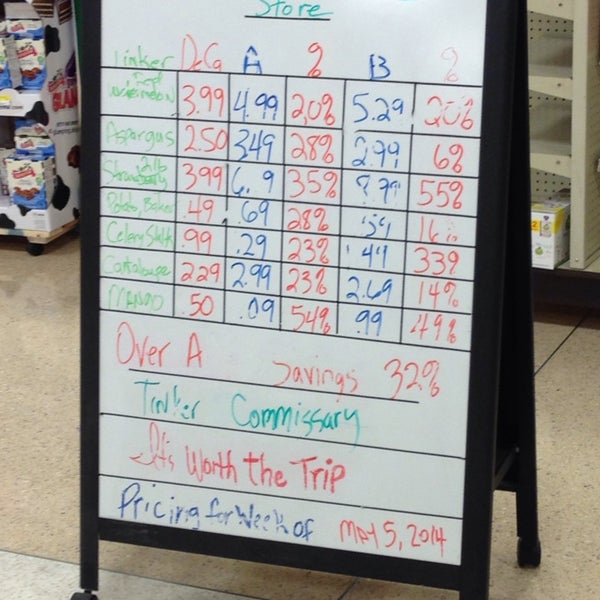 Store
Tinker DeCA A % B %
Watermelon 3.99 4.99 20% 5.29 20%
Aspargus 2.50 3.49 28% 2.99 6%
3.99 35% 55%
Potato, Baker .49 .69 28%
Celery Stalk .99 .29 23% 33%
Cantaloupe 2.29 2.99 23% 2.69 14%
MANGO .50 .09 54% .99 49%
Over A Savings 32%
Tinker Commissary
It's Worth the Trip
Pricing for Week of May 5, 2014